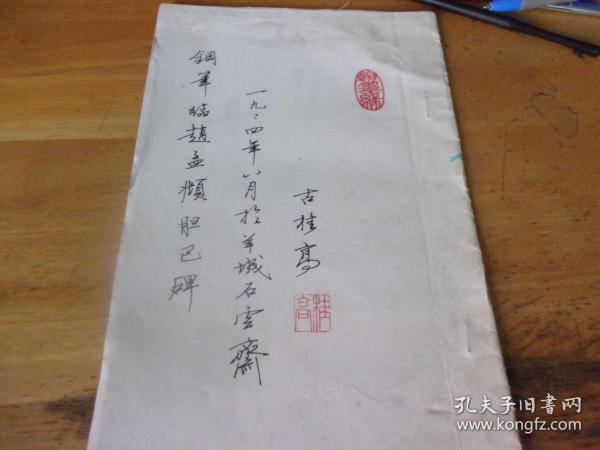 古桂高
桂高
一九〇四年八月於羊城石雲齋
鋼筆臨趙孟頫胆巴碑
孔夫子旧书网
www.kongfz.com